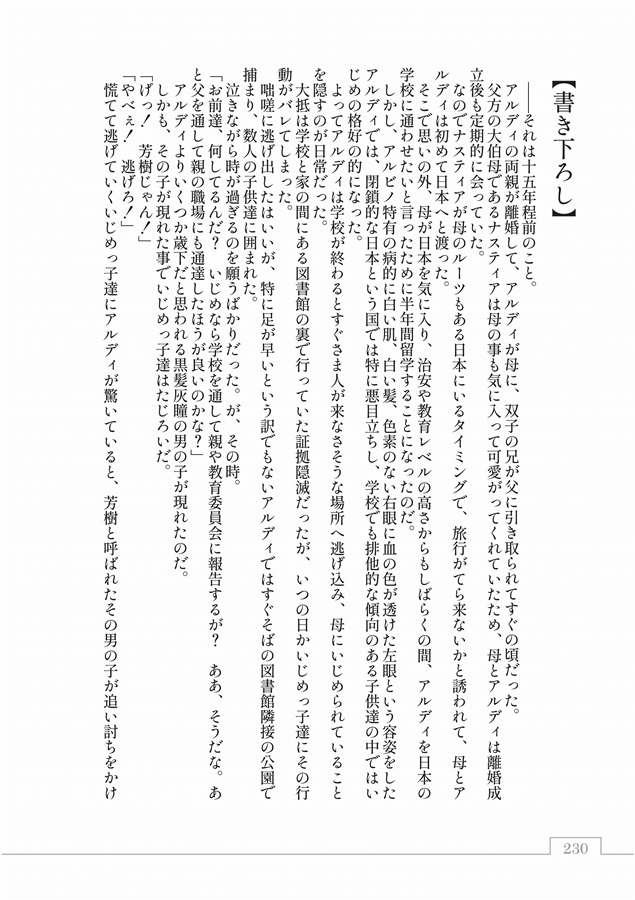 【書き下ろし】
――それは十五年程前のこと。
アルディの両親が離婚して、アルディが母に、双子の兄が父に引き取られてすぐの頃だった。
父方の大伯母であるナスティアは母の事も気に入って可愛がってくれていたため、母とアルディは離婚成
立後も定期的に会っていた。
なのでナスティアが母のルーツもある日本にいるタイミングで、旅行がてら来ないかと誘われて、母とア
ルディは初めて日本へと渡った。
そこで思いの外、母が日本を気に入り、治安や教育レベルの高さからもしばらくの間、アルディを日本の
学校に通わせたいと言ったために半年間留学することになったのだ。
しかし、アルビノ特有の病的に白い肌、白い髪、色素のない右眼に血の色が透けた左眼という容姿をした
アルディでは、閉鎖的な日本という国では特に悪目立ちし、学校でも排他的な傾向のある子供達の中ではい
じめの格好の的になった。
よってアルディは学校が終わるとすぐさま人が来なさそうな場所へ逃げ込み、母にいじめられていること
を隠すのが日常だった。
大抵は学校と家の間にある図書館の裏で行っていた証拠隠滅だったが、いつの日かいじめっ子達にその行
動がバレてしまった。
咄嗟に逃げ出したはいいが、特に足が早いという訳でもないアルディではすぐそばの図書館隣接の公園で
捕まり、数人の子供達に囲まれた。
泣きながら時が過ぎるのを願うばかりだった。が、その時。
「お前達、何してるんだ？　いじめなら学校を通して親や教育委員会に報告するが？　ああ、そうだな。あ
と父を通して親の職場にも通達したほうが良いのかな？」
アルディよりいくつか歳下だと思われる黒髪灰瞳の男の子が現れたのだ。
しかも、その子が現れた事でいじめっ子達はたじろいだ。
「げっ！　芳樹じゃん！」
「やべぇ！　逃げろ！」
慌てて逃げていくいじめっ子達にアルディが驚いていると、芳樹と呼ばれたその男の子が追い討ちをかけ
230